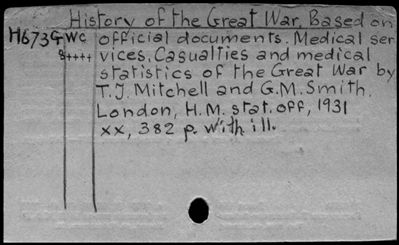 History of the Great War, Based on
H673G wc official documents. Medical ser
8++++ vices. Casualties and medical
statistics of the Great War by
T.J. Mitchell and G.M. Smith.
London, H.M. stat. off, 1931
xx, 382 p. with ill.